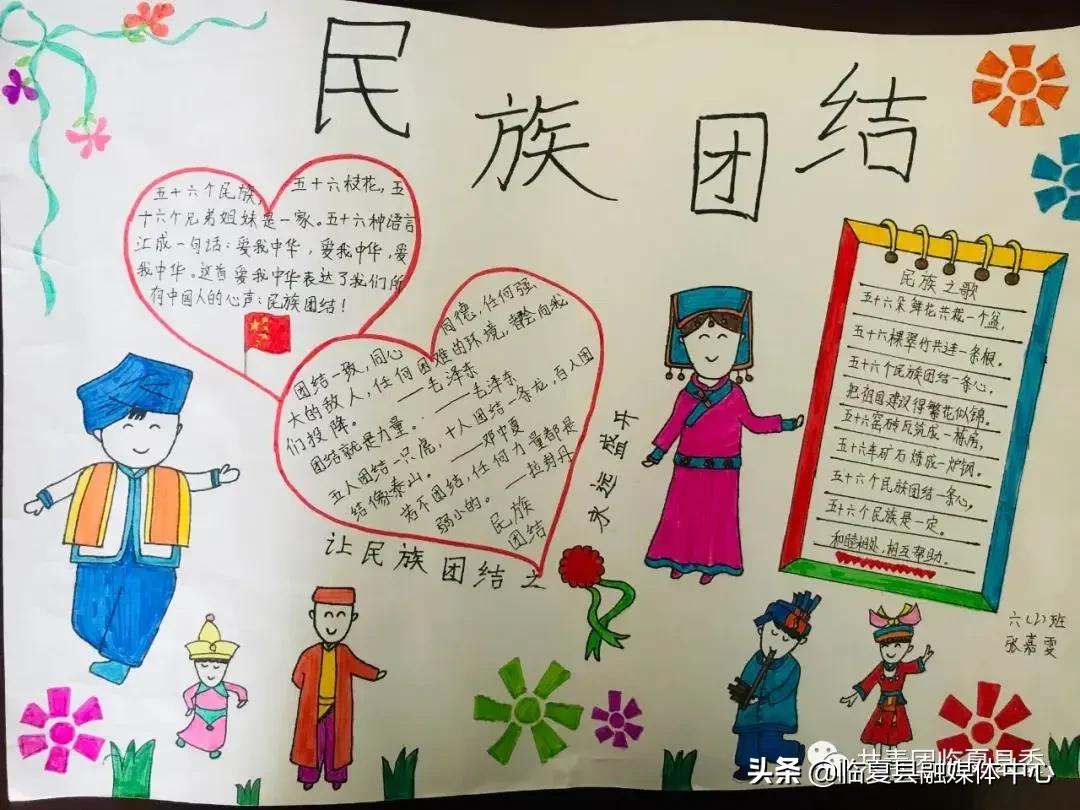 民族团结
五十六个民族，五十六枝花，五
十六个兄弟姐妹是一家。五十六种语言
汇成一句话：爱我中华，爱我中华，爱
我中华。这首爱我中华表达了我们所
有中国人的心声：民族团结！
团结一致，同心同德，任何强
大的敌人，任何困难的环境，都会向我
们投降。——毛泽东
团结就是力量。——毛泽东
五人团结一只虎，十人团结一条龙，百人团
结像泰山。——邓中夏
若不团结，任何力量都是
弱小的。——拉封丹
民族
团结
让民族团结之
永远盛开
民族之歌
五十六朵鲜花共栽一个盆，
五十六棵翠竹共连一条根。
五十六个民族团结一条心，
把祖国建议得繁花似锦。
五十六窑砖瓦筑成一栋房，
五十六车矿石炼成一炉钢。
五十六个民族团结一条心，
五十六个民族是一定。
和睦相处，相互帮助。
六（2）班
张嘉雯
共青团临夏县委
头条 @临夏县融媒体中心